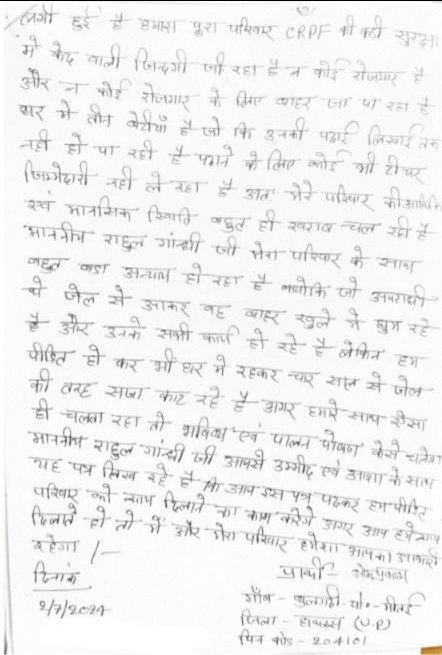 लगी हुई है हमारा पूरा परिवार CRPF की कडी सुरक्षा
मे कैद वाली जिन्दगी जी रहा है न कोई रोजगार है
और न कोई रोजगार के लिए बाहर जा पा रहा है
घर मे तीन बेटीयाँ है जो कि उनकी पढाई लिखाई तक
नही हो पा रही है पढाने के लिए कोई भी टीचर
जिम्मेदारी नही ले रहा है अतः मेरे परिवार की आर्थिक
एवं मानसिक स्थिति बहुत ही खराब चल रही है
माननीय राहुल गांन्धी जी मेरा परिवार के साथ
बहुत बडा अन्याय हो रहा है क्योकि जो अपराधी
थे जेल से आकर वह बाहर खुले मे घूम रहे
है और उनके सभी कार्य हो रहे है लेकिन हम
पीडित हो कर भी घर मे रहकर चार साल से जेल
की तरह सजा काट रहे है अगर हमारे साथ ऐसा
ही चलता रहा तो भविष्य एवं पालन पोषण कैसे चलेगा
माननीय राहुल गांन्धी जी आपसे उम्मीद एवं आशा के साथ
यह पत्र लिख रहे है कि आप इस पत्र पढकर हम पीडित
परिवार को न्याय दिलाने का काम करेंगे अगर आप हमे न्याय
दिलाते हो तो मैं और मेरा परिवार हमेशा आपका आभारी
रहेगा /-
दिनांक
2/7/2024
प्रार्थी - ओमप्रकाश
गाँव - बुलगढी - पो॰ - मीतई
जिला - हाथरस (U.P)
पिन कोड - 204101